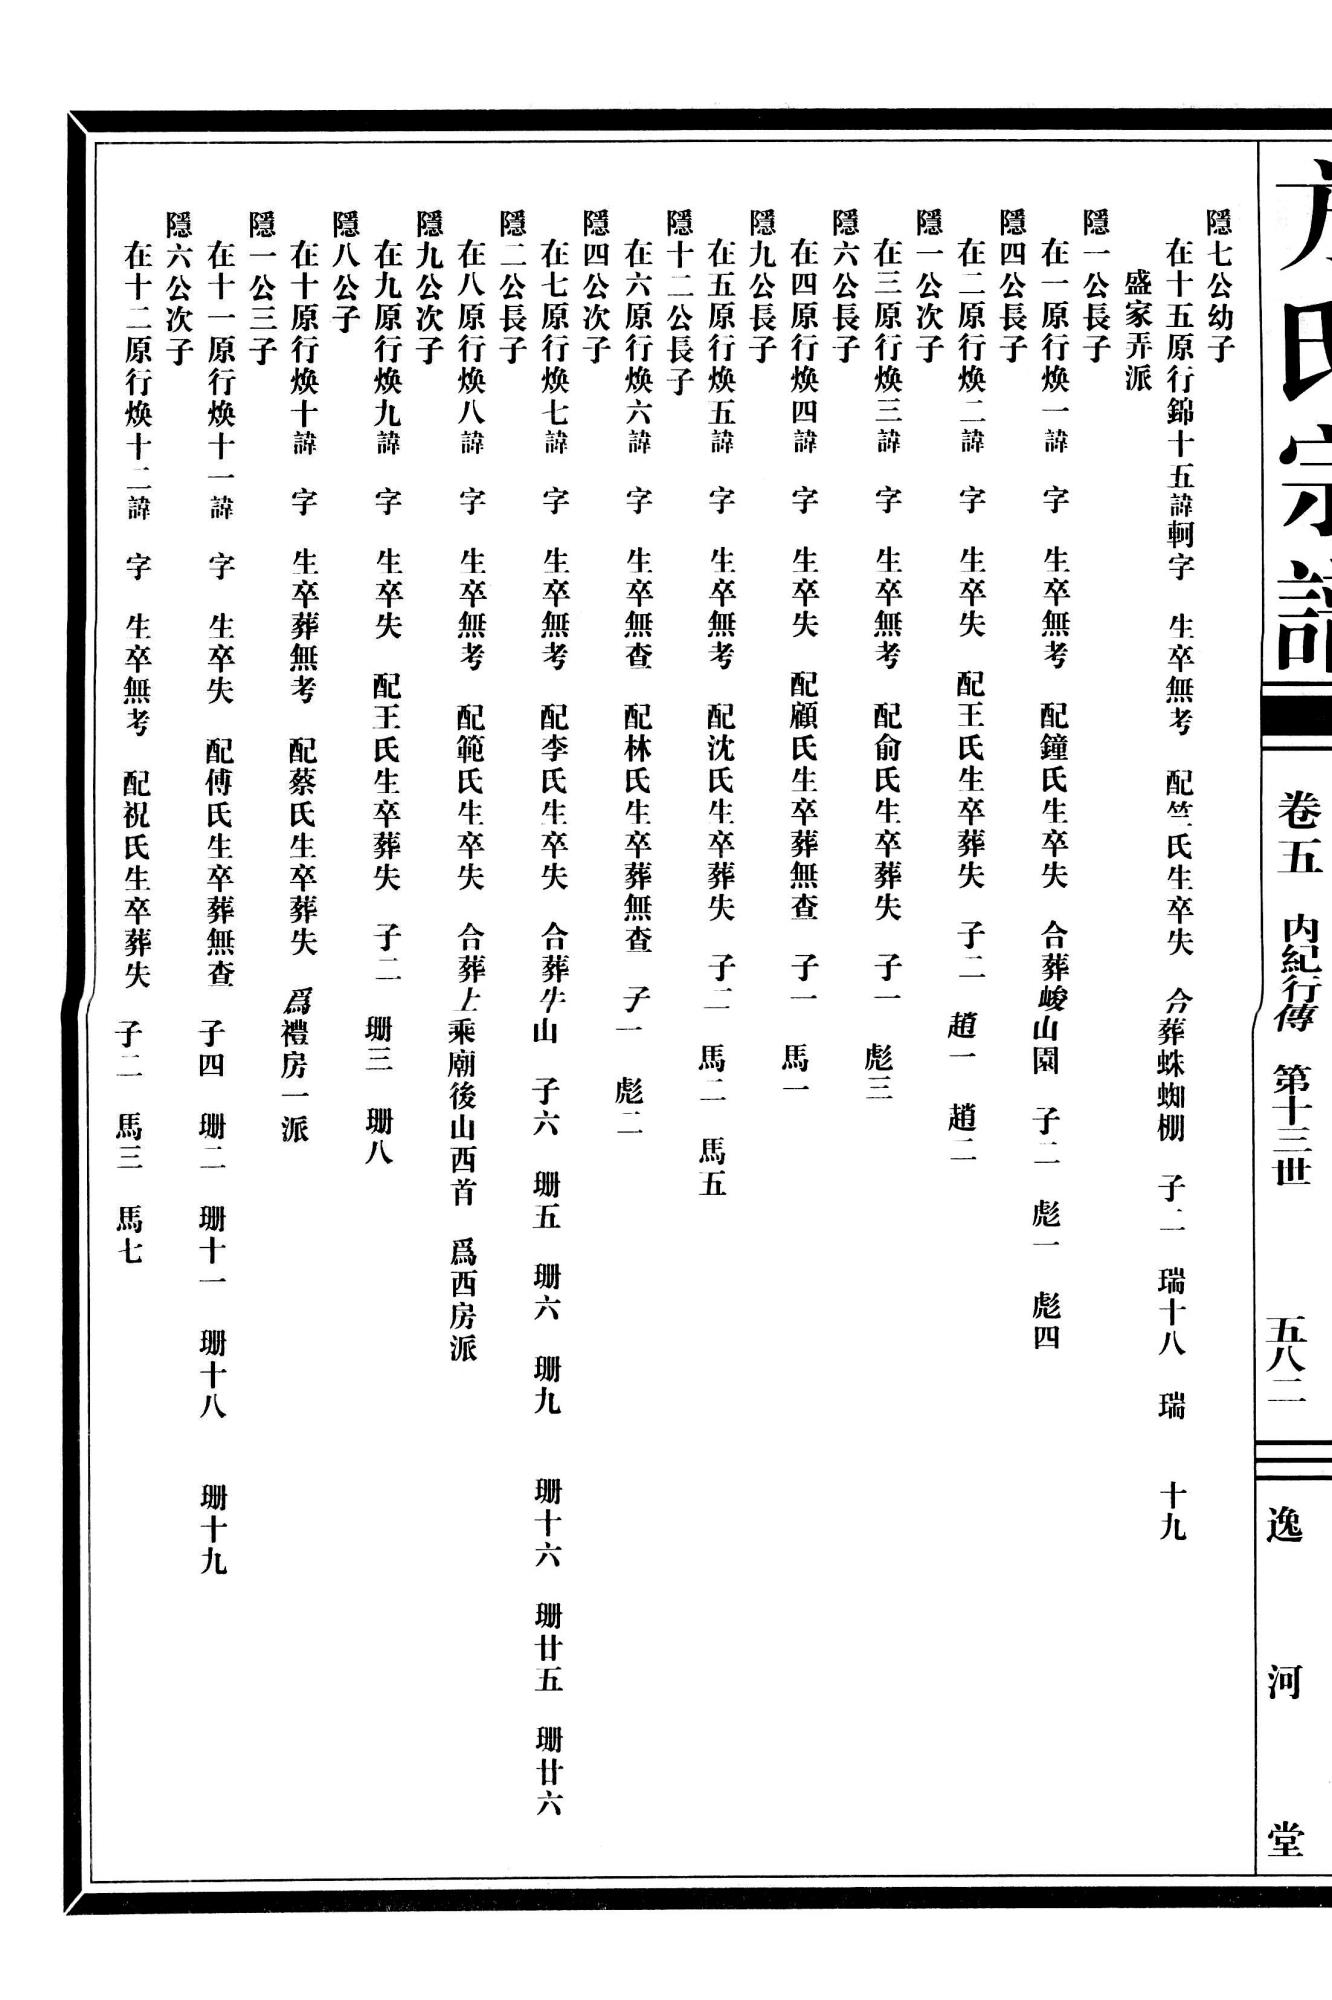 氏宗譜
卷五 内紀行傳 第十三世 五八二
逸河堂
隱七公幼子
在十五原行錦十五諱軻字 生卒無考 配竺氏生卒失 合葬蛛蜘棚 子二 瑞十八 瑞十九
盛家弄派
隱一公長子
在一原行煥一諱 字 生卒無考 配鐘氏生卒失 合葬峻山園 子二 彪一 彪四
隱四公長子
在二原行煥二諱 字 生卒失 配王氏生卒葬失 子二 趙一 趙二
隱一公次子
在三原行煥三諱 字 生卒無考 配俞氏生卒葬失 子一 彪三
隱六公長子
在四原行煥四諱 字 生卒失 配顧氏生卒葬無查 子一 馬一
隱九公長子
在五原行煥五諱 字 生卒無考 配沈氏生卒葬失 子二 馬二 馬五
隱十二公長子
在六原行煥六諱 字 生卒無查 配林氏生卒葬無查 子一 彪二
隱四公次子
在七原行煥七諱 字 生卒無考 配李氏生卒失 合葬牛山 子六 珊五 珊六 珊九 珊十六 珊廿五 珊廿六
隱二公長子
在八原行煥八諱 字 生卒無考 配範氏生卒失 合葬上乘廟後山西首 爲西房派
隱九公次子
在九原行煥九諱 字 生卒失 配王氏生卒葬失 子二 珊三 珊八
隱八公子
在十原行煥十諱 字 生卒葬無考 配蔡氏生卒葬失 爲禮房一派
隱一公三子
在十一原行煥十一諱 字 生卒失 配傅氏生卒葬無查 子四 珊二 珊十一 珊十八 珊十九
隱六公次子
在十二原行煥十二諱 字 生卒無考 配祝氏生卒葬失 子二 馬三 馬七